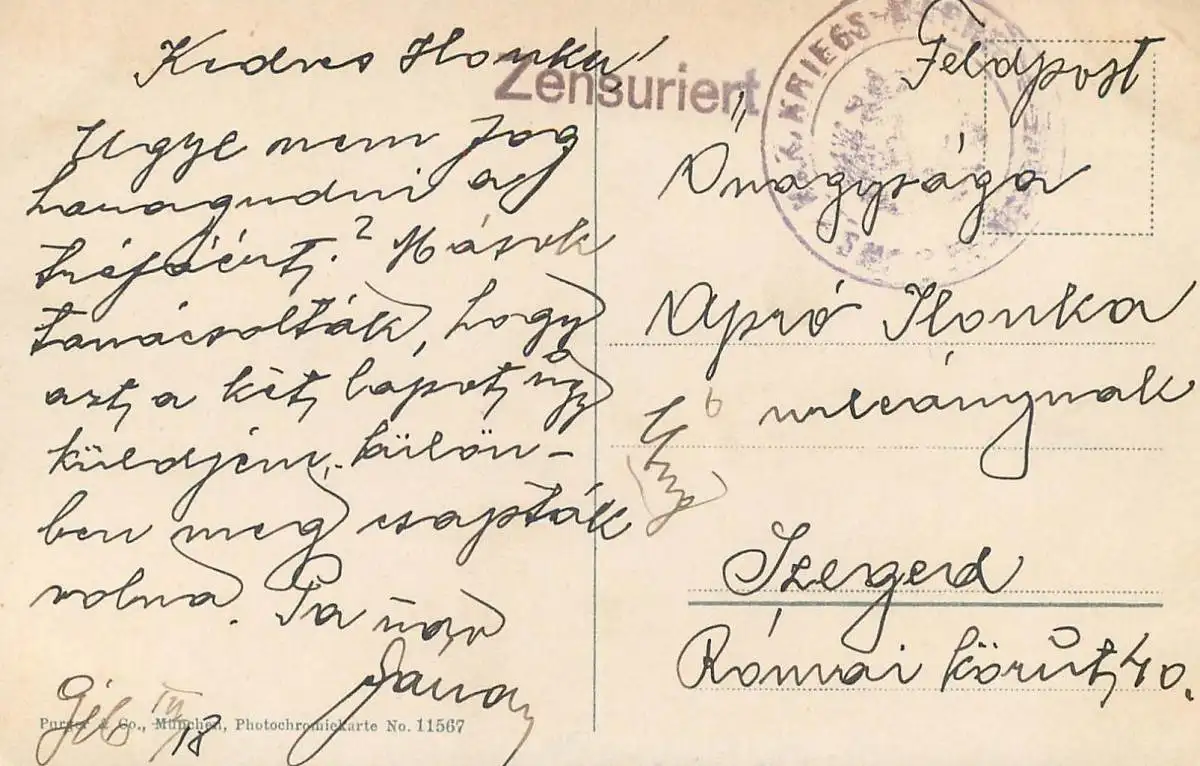 Kedves Ilonka!
Ugye nem fog
haragudni a
tréfáért? Mások
tanácsolták, hogy
azt a két lapot úgy
küldjem, külön-
ben meg csapták
volna. Pa
Zensuriert
K.u.K. KRIEGS-
Feldpost
Őnagysága
Apró Ilonka
urleánynak
Szeged
Római körút 40.
IV/18
Purger & Co., München, Photochromiekarte No. 11567